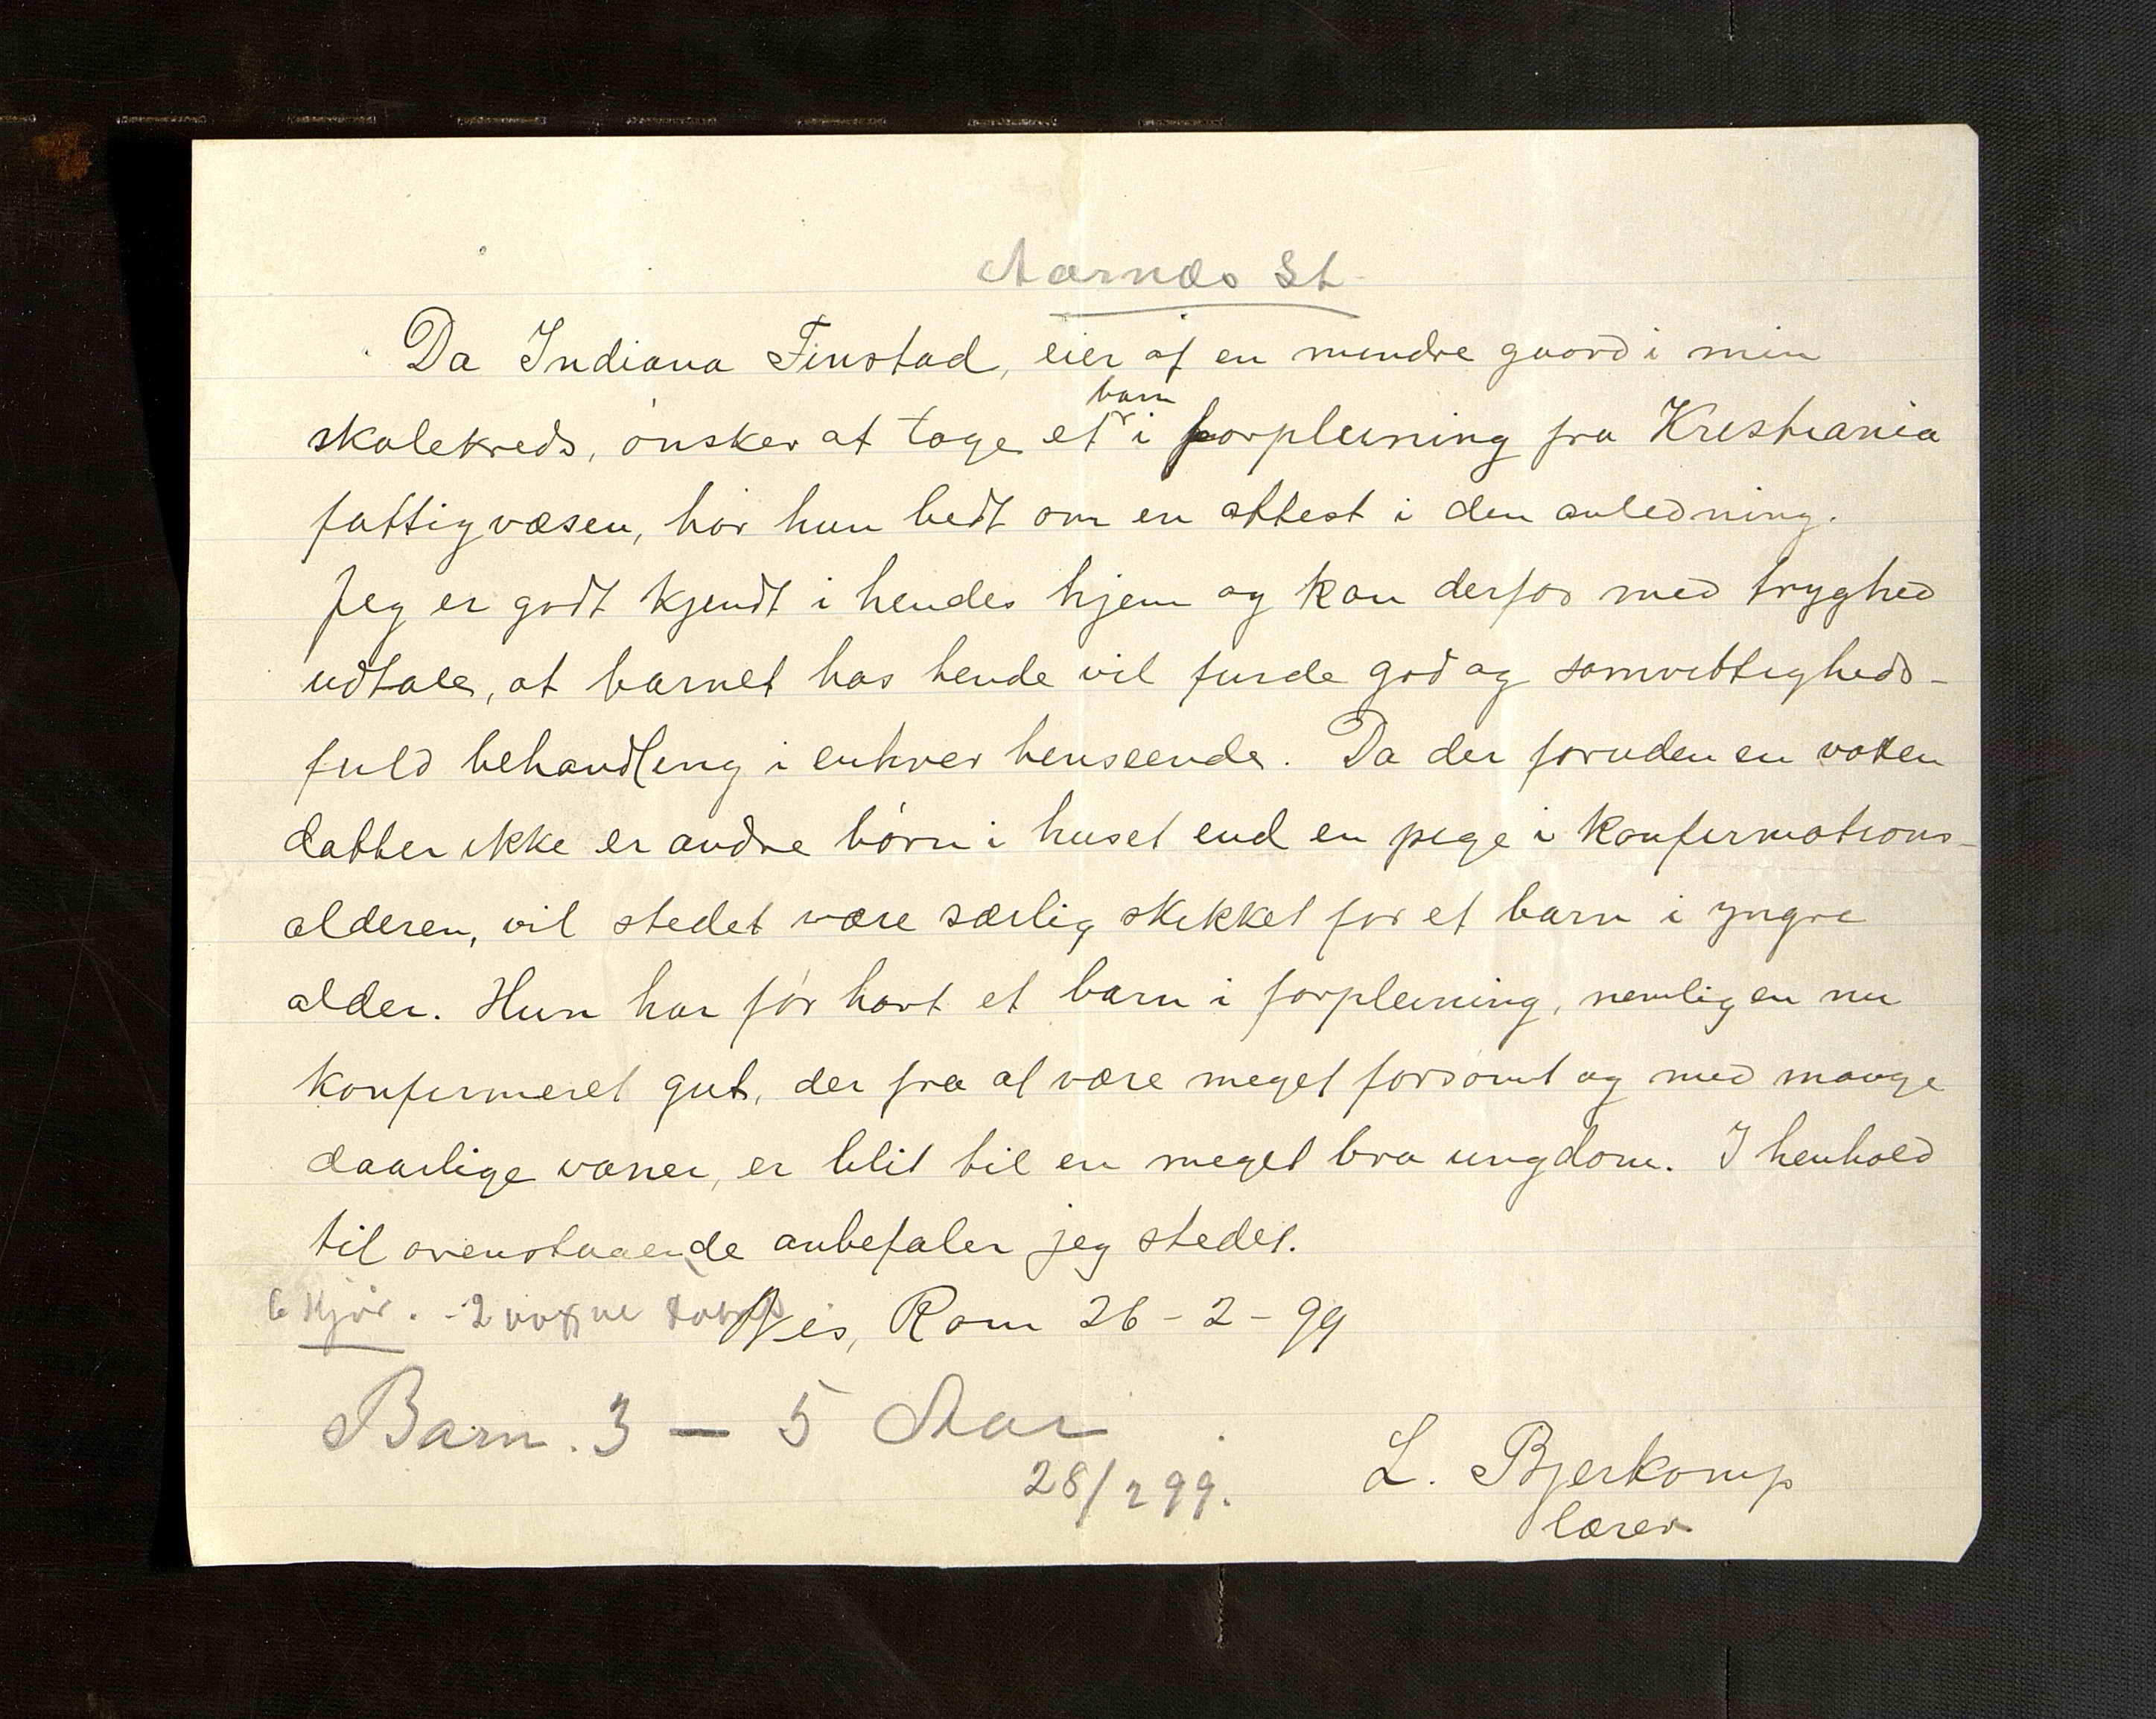 Aarnæs St
Da Indiana Finstad, eier af en mindre gaard i min
barn
skolekreds, ønsker at tage et i forpleining fra Kristiania
fattigvæsen, har hun bedt om en attest i den anledning.
Jeg er godt kjendt i hendes hjem og kan derfor med tryghed
udtale, at barnet hos hende vil finde god og samvittigheds-
fuld behandling i enhver henseende. Da der foruden en voxen
datter ikke er andre børn i huset end en pige i konfirmations-
alderen, vil stedet være særlig skikket for et barn i yngre
alder. Hun har før havt et barn i forpleining, nemlig en nu
konfirmeret gut, der fra at være meget forsømt og med mange
daarlige vaner, er blit til en meget bra ungdom. I henhold
til ovenstaaende anbefaler jeg stedet.
6 Kjør. - 2 voxne
Nes, Rom 26-2-99
Barn. 3 — 5 Aar
28/2 99.
L. Bjerkomp
lærer